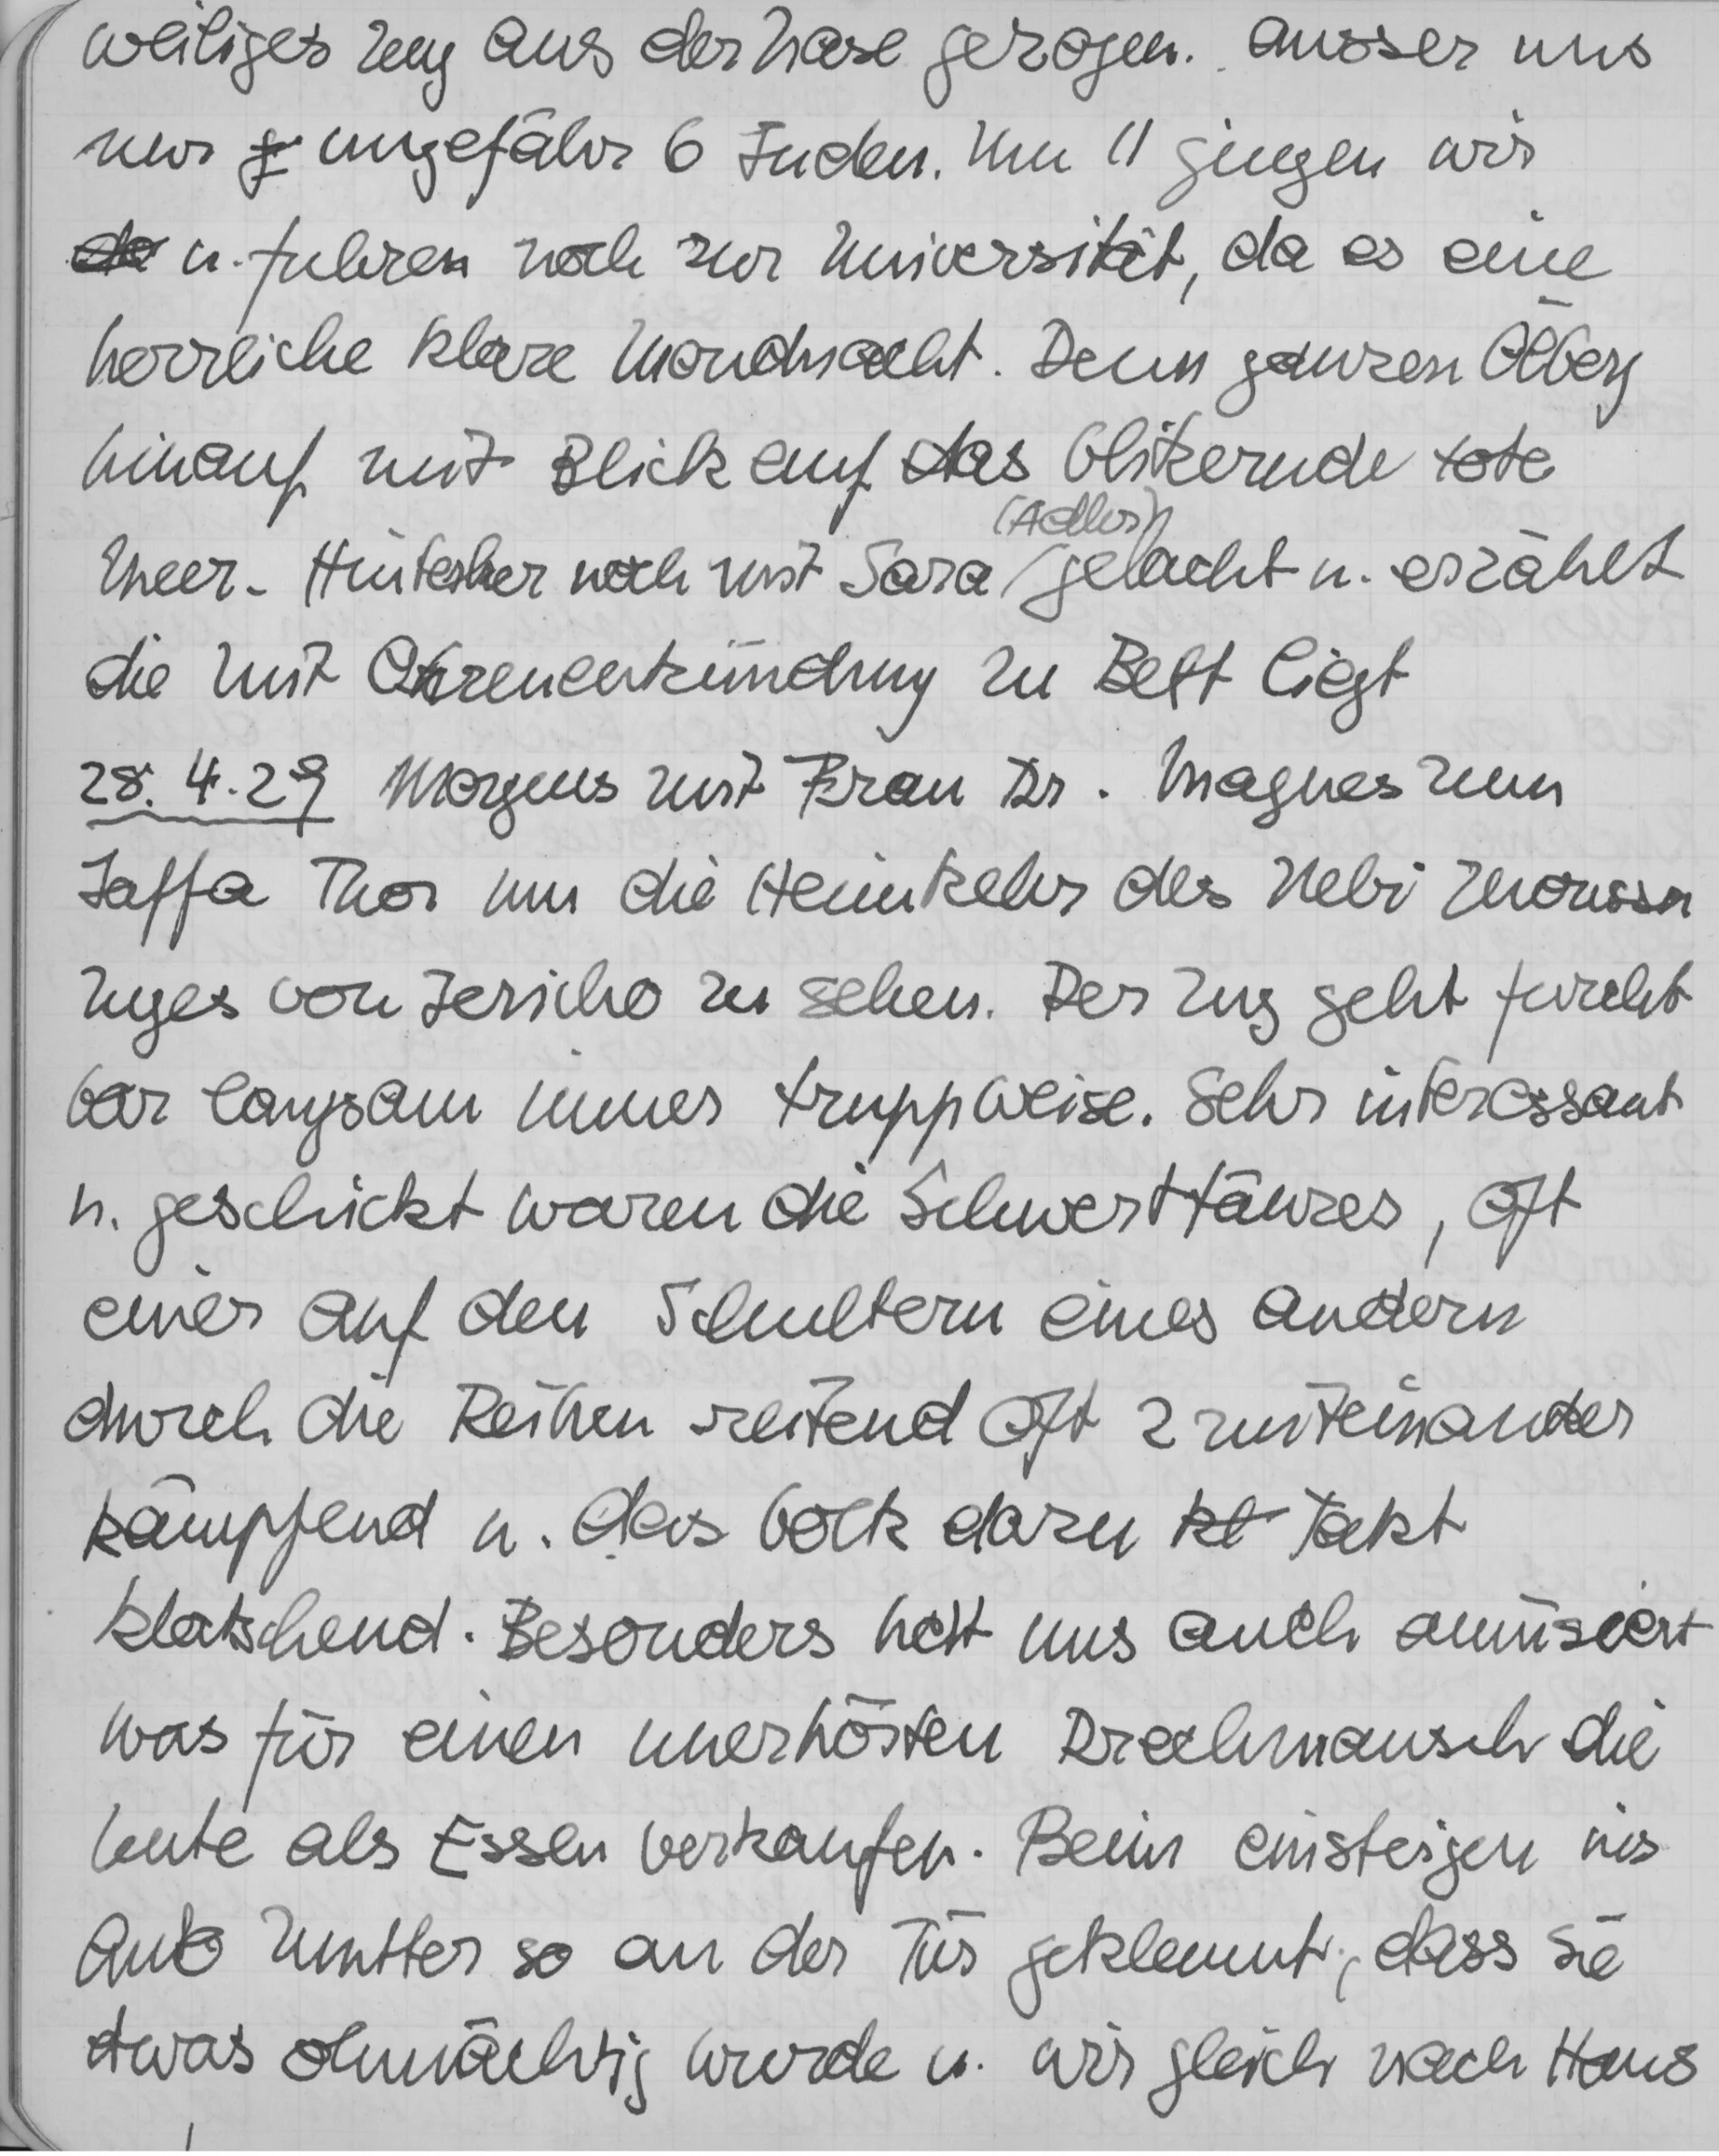 weiliges Zeug aus der Nase gezogen. ausser uns
nur ungefähr 6 Juden. Um 11 gingen wir
u. fuhren noch zur Universität, da es eine
herrliche klare Mondnacht. Denn ganzen Ölberg
hinauf mit Blick auf das Glitzernde tote
Meer. Hinterher noch mit Sara (Adler) gelacht u. erzählt
die mit Ohrenentzündung zu Bett liegt
28. 4. 29 Morgens mit Frau Dr. Magnes zum
Jaffa Thor um die Heimkehr des Nebi Moussa
Zuges von Jericho zu sehen. Der Zug geht furcht
bar langsam immer truppweise. Sehr interessant
u. geschickt waren die Schwerttänzer, oft
einer auf den Schultern eines andern
durch die Reihen reitend oft 2 miteinander
kämpfend u. das Volk dazu Takt
klatschend. Besonders hatt uns auch amüsiert
was für einen unerhörten Drecksmansch die
Leute als Essen verkaufen. Beim einsteigen ins
Auto Mutter so an der Tür geklemmt, dass sie
etwas ohnmächtig wurde u. wir gleich nach Haus